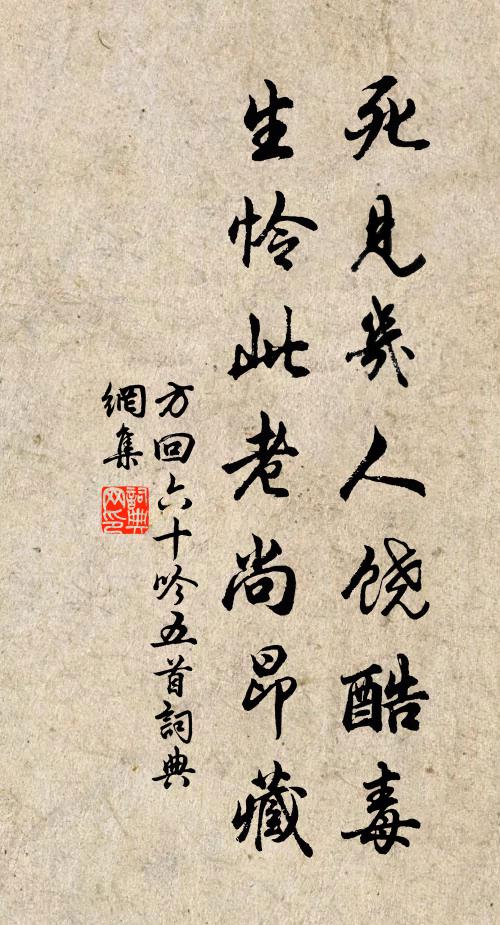 死見幾人饒酷毒
生憐此老尚昂藏
方回六十吟五首詞典
網集
詞典
网印